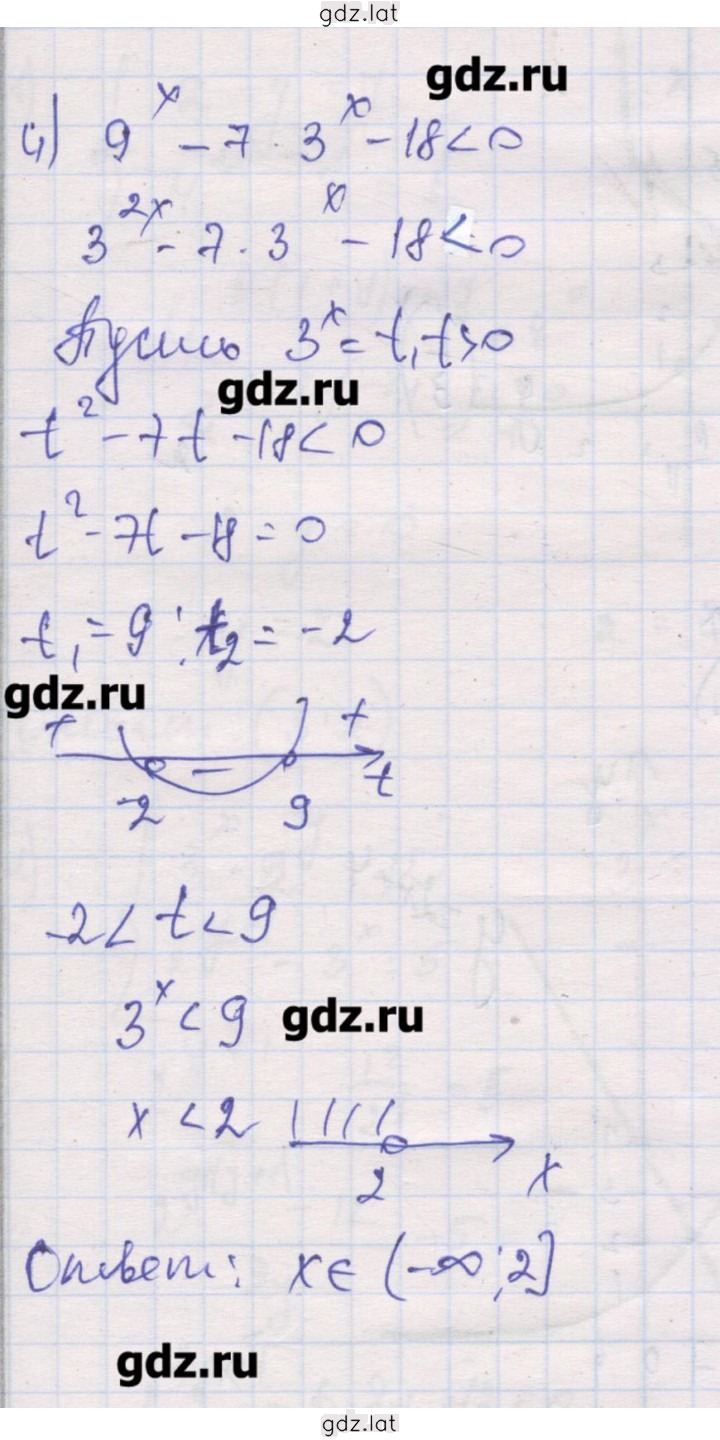 gdz.lat
gdz.ru
4) 9^x - 7 · 3^x - 18 < 0
3^2x - 7 · 3^x - 18 < 0
Пусть 3^x = t, t > 0
gdz.ru
t^2 - 7t - 18 < 0
t^2 - 7t - 18 = 0
t₁ = 9 ; t₂ = -2
gdz.ru
+ - + t
-2 9
-2 < t < 9
3^x < 9
gdz.ru
x < 2
2 x
Ответ: x ∈ (-∞; 2]
gdz.ru
gdz.lat